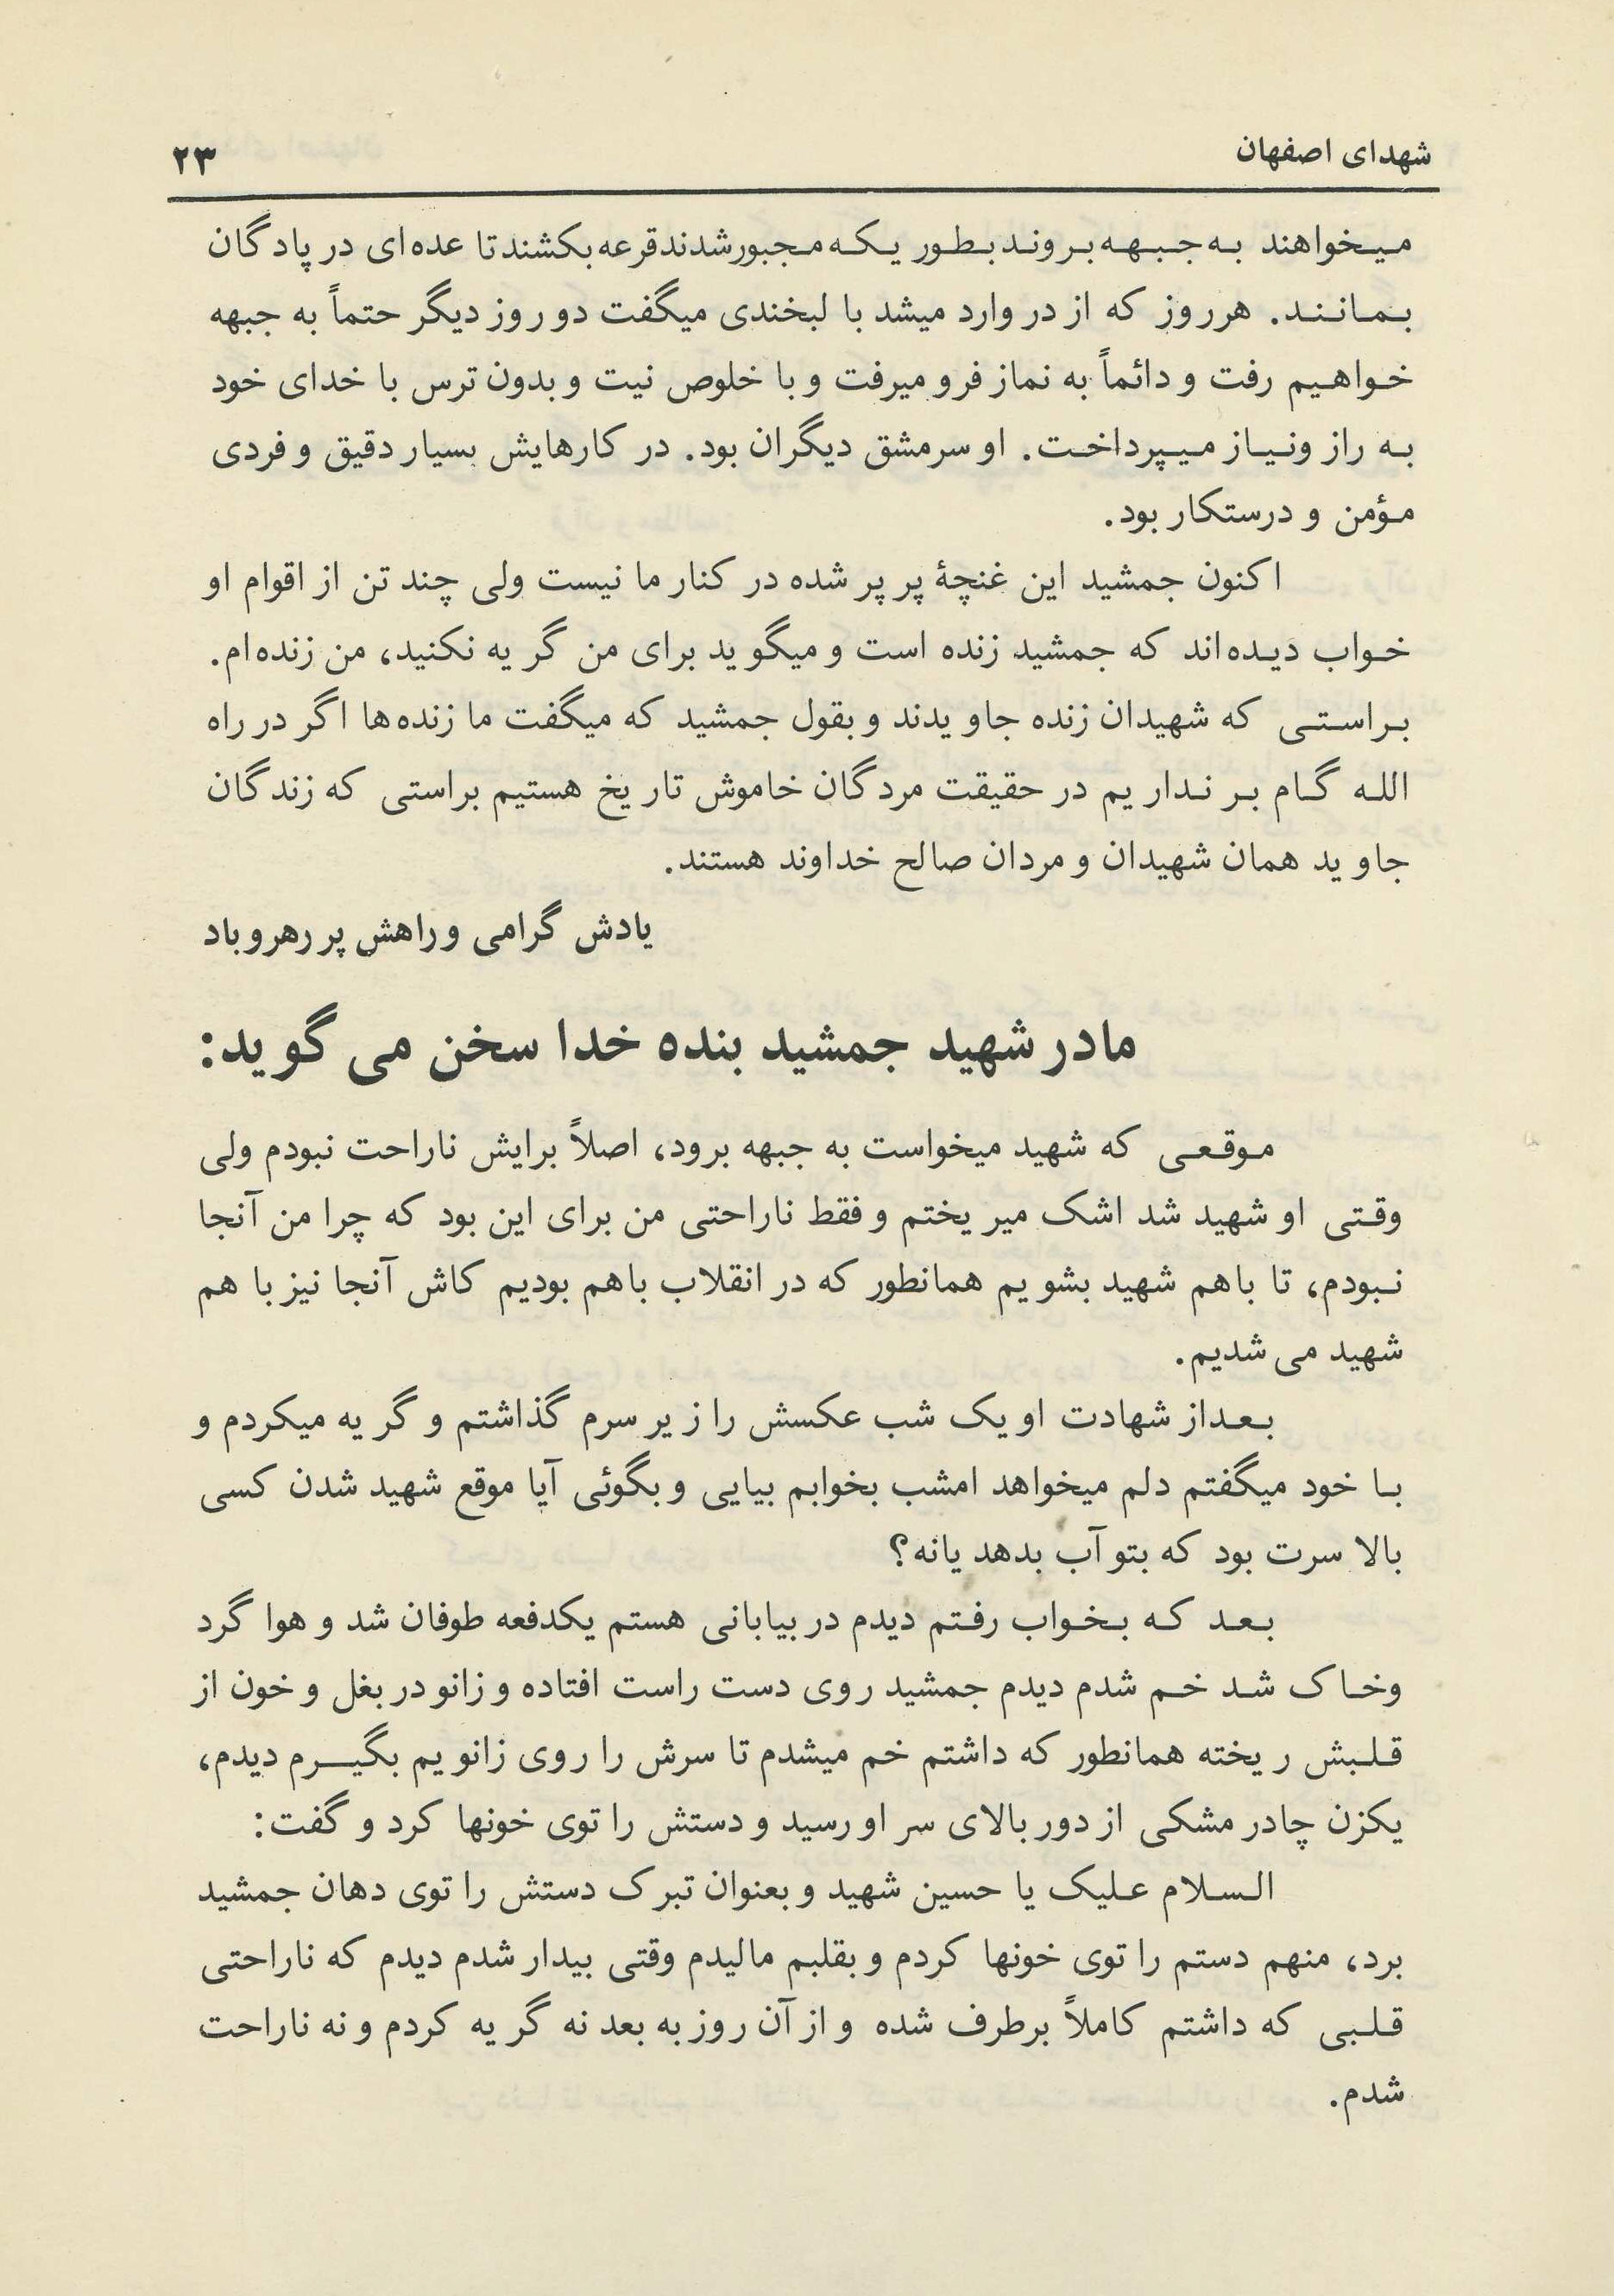 شهدای اصفهان
۲۳
میخواهند به جبهه بروند بطوریکه مجبور شدند قرعه بکشند تا عده‌ای در پادگان
بمانند. هر روز که از در وارد میشد با لبخندی میگفت دو روز دیگر حتماً به جبهه
خواهیم رفت و دائماً به نماز فرو میرفت و با خلوص نیت و بدون ترس با خدای خود
به راز ونیاز میپرداخت. او سرمشق دیگران بود. در کارهایش بسیار دقیق و فردی
مؤمن و درستکار بود.
اکنون جمشید این غنچهٔ پر پر شده در کنار ما نیست ولی چند تن از اقوام او
خواب دیده‌اند که جمشید زنده است و میگوید برای من گریه نکنید، من زنده‌ام.
براستی که شهیدان زنده جاویدند و بقول جمشید که میگفت ما زنده‌ها اگر در راه
الله گام بر نداریم در حقیقت مردگان خاموش تاریخ هستیم براستی که زندگان
جاوید همان شهیدان و مردان صالح خداوند هستند.
یادش گرامی و راهش پر رهرو باد
مادر شهید جمشید بنده خدا سخن می گوید:
موقعی که شهید میخواست به جبهه برود، اصلاً برایش ناراحت نبودم ولی
وقتی او شهید شد اشک میریختم و فقط ناراحتی من برای این بود که چرا من آنجا
نبودم، تا باهم شهید بشویم همانطور که در انقلاب باهم بودیم کاش آنجا نیز با هم
شهید می شدیم.
بعداز شهادت او یک شب عکسش را زیر سرم گذاشتم و گریه میکردم و
با خود میگفتم دلم میخواهد امشب بخوابم بیایی و بگوئی آیا موقع شهید شدن کسی
بالا سرت بود که بتو آب بدهد یانه؟
بعد که بخواب رفتم دیدم در بیابانی هستم یکدفعه طوفان شد و هوا گرد
وخاک شد خم شدم دیدم جمشید روی دست راست افتاده و زانو در بغل و خون از
قلبش ریخته همانطور که داشتم خم میشدم تا سرش را روی زانویم بگیرم دیدم،
یکزن چادر مشکی از دور بالای سر او رسید و دستش را توی خونها کرد و گفت:
السلام علیک یا حسین شهید و بعنوان تبرک دستش را توی دهان جمشید
برد، منهم دستم را توی خونها کردم و بقلبم مالیدم وقتی بیدار شدم دیدم که ناراحتی
قلبی که داشتم کاملاً برطرف شده و از آن روز به بعد نه گریه کردم و نه ناراحت
شدم.